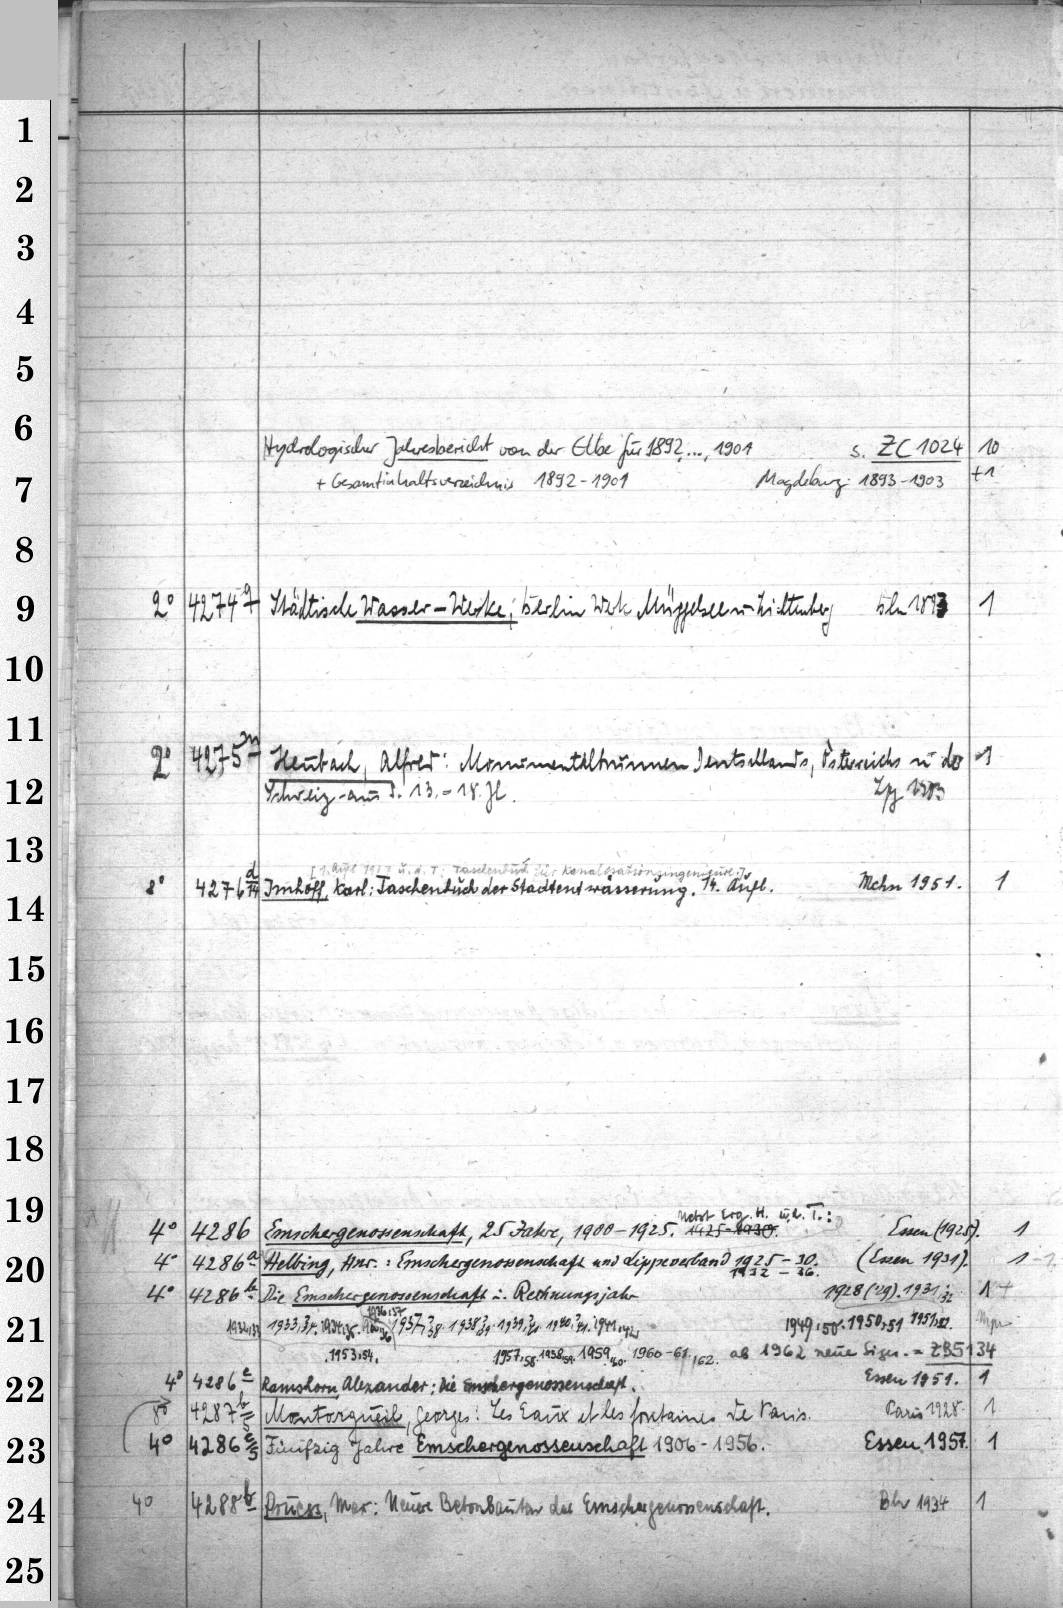 1
2
3
4
5
6
Hydrologischer Jahresbericht von der Elbe für 1892,..., 1901 s. ZC 1024 10
7
+ Gesamtinhaltsverzeichnis 1892-1901 Magdeburg: 1893-1903 +1
8
9
2° 4274 Städtische Wasser-Werke; Berlin Werk Müggelsee u. Lichtenberg Bln 1893 1
10
11
2° 4275m Heubach, Alfred: Monumentalbrunnen Deutschlands, Österreichs u. der 1
12
Schweiz aus d. 13.-18. Jh. Lpz
13
[1. Aufl. u. d. T.: Taschenbuch für Kanalisationsingenieure.]
8° 4276 d/14 Imhoff, Karl: Taschenbuch der Stadtentwässerung. 14. Aufl. Mchn 1951. 1
14
15
16
17
18
19
Nebst Erg. H. u. d. T.:
4° 4286 Emschergenossenschaft, 25 Jahre, 1900-1925. 1925-1930. Essen (1925). 1
20
4° 4286a Helbing, Hnr.: Emschergenossenschaft und Lippeverband 1925-30. (Essen 1931). 1
1932-36.
4° 4286b Die Emschergenossenschaft i. Rechnungsjahr 1928 (29). 1931/32 1+
1936,37
21
1933,34. 1934,35. 1937,38 1938,39 1939,40 1940,41 1941,42 1949,50. 1950,51 1951,52.
1953,54. 1957,58. 1958,59. 1959,60. 1960-61, 62. ab 1962 neue Sign. = ZB5134
22
4° 4286c Ramshorn, Alexander: Die Emschergenossenschaft. Essen 1951. 1
8° 4287b Montorgueil, Georges: Les Eaux et les fontaines de Paris. Paris 1928. 1
23
4° 4286 c/5 Fünfzig Jahre Emschergenossenschaft 1906-1956. Essen 1957. 1
24
4° 4288b Prüss, Max: Neuere Betonbauten der Emschergenossenschaft. Bln 1934 1
25